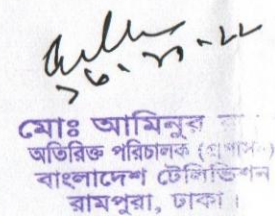 ১৩-১১-২২
মোঃ আমিনুর
অতিরিক্ত পরিচালক (প্রশাসন)
বাংলাদেশ টেলিভিশন
রামপুরা, ঢাকা।